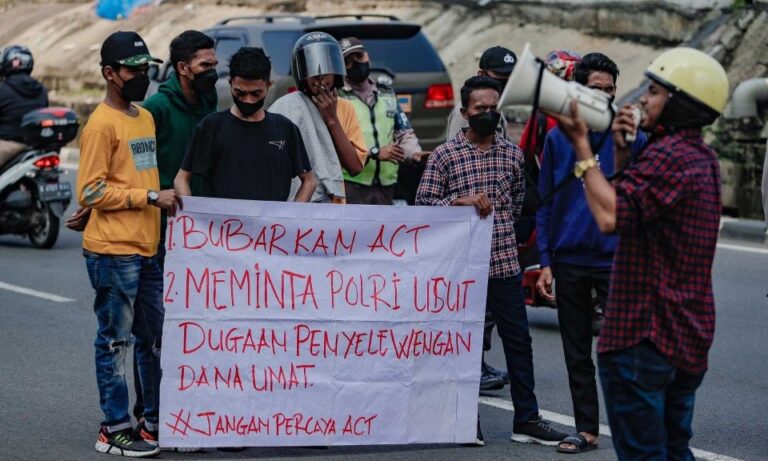 1. BUBARKAN ACT
2. MEMINTA POLRI USUT
DUGAAN PENYELEWENGAN
DANA UMAT.
#JANGAN PERCAYA ACT